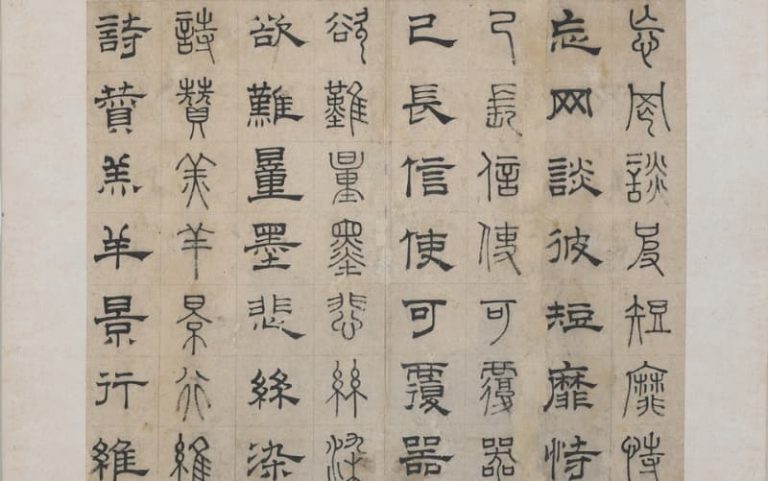 忘罔談彼短靡恃
忘网談彼短靡恃
己長信使可覆器
己長信使可覆器
欲難量墨悲絲染
欲難量墨悲絲染
詩贊羔羊景行維
詩贊羔羊景行維